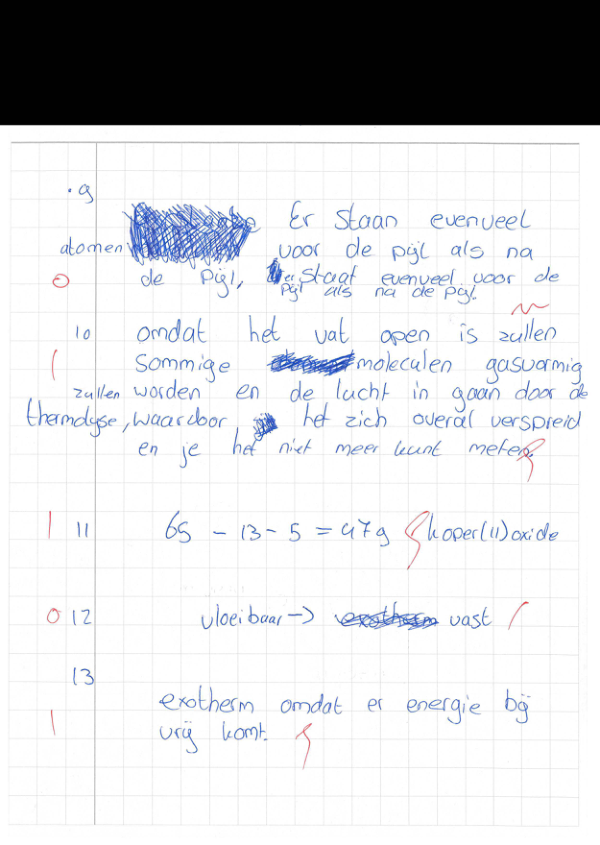 .9
Er staan evenveel
atomen voor de pijl als na
0 de pijl, er staat evenveel voor de
pijl als na de pijl.
10 omdat het vat open is zullen
1 sommige moleculen gasvormig
zullen worden en de lucht in gaan door de
thermolyse, waardoor het zich overal verspreid
en je het niet meer kunt meten.
1 11 65 - 13 - 5 = 47g koper(II)oxide
0 12 vloeibaar -> vast
13
exotherm omdat er energie bij
1 vrij komt.